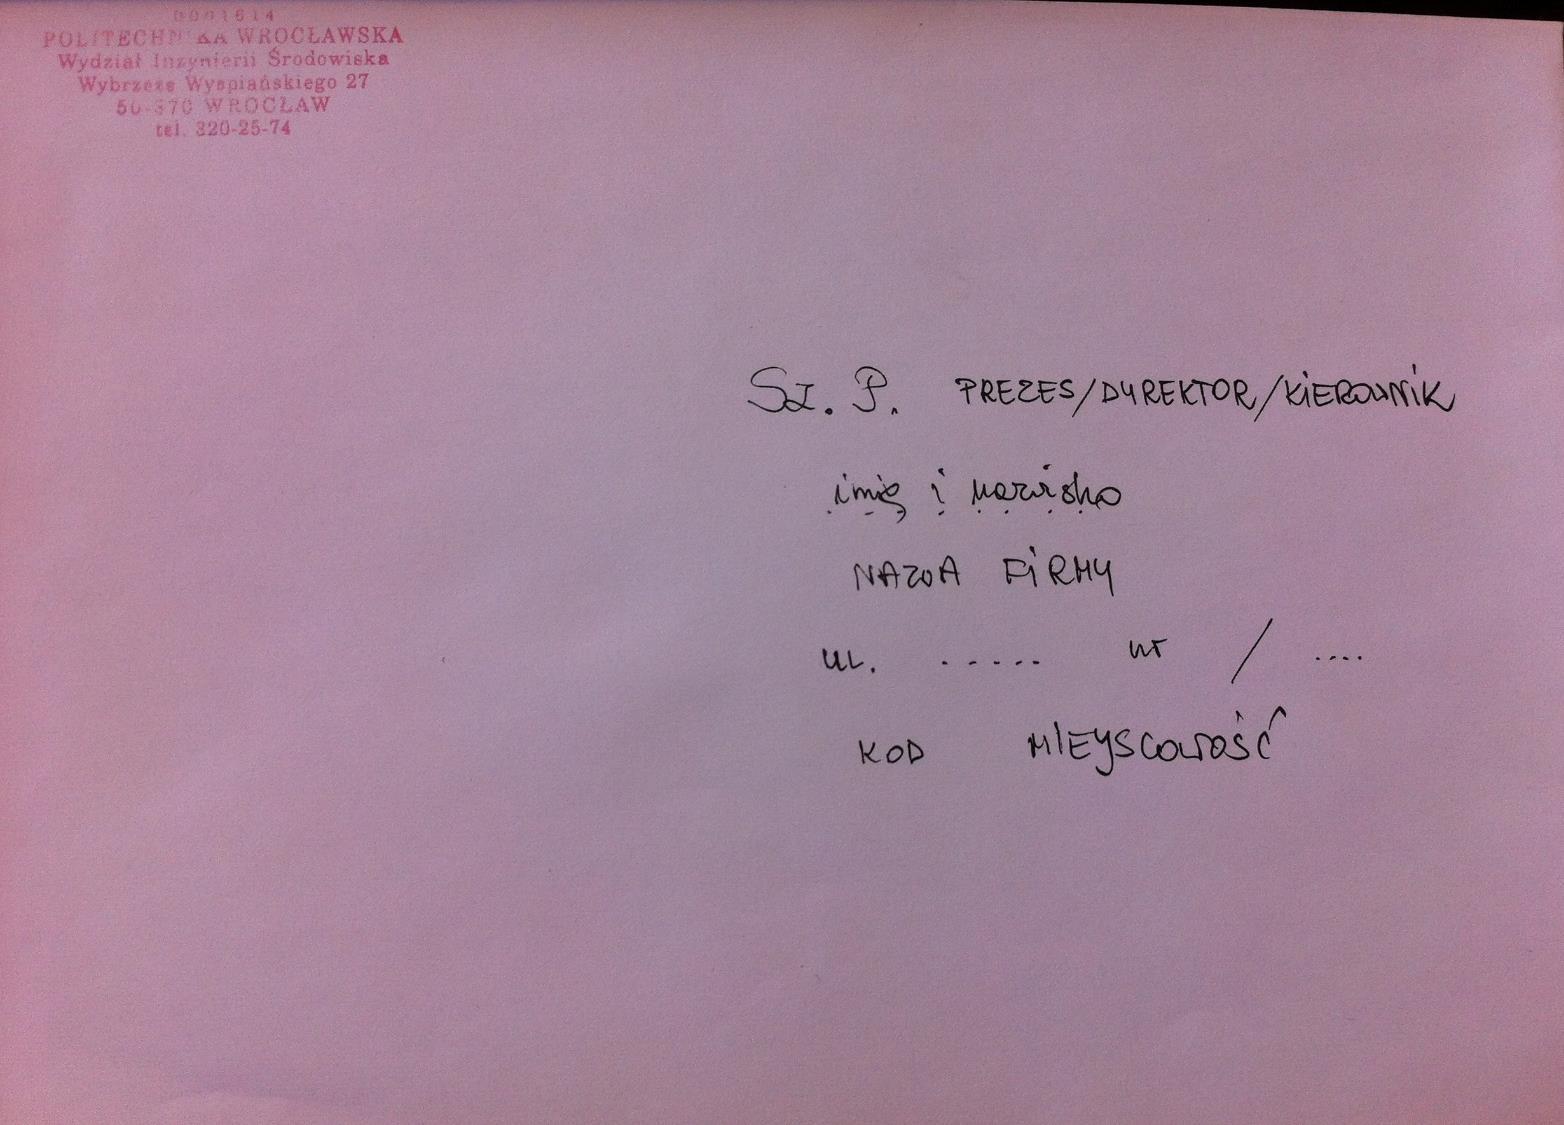 0001614
POLITECHNIKA WROCŁAWSKA
Wydział Inżynierii Środowiska
Wybrzeże Wyspiańskiego 27
50-370 WROCŁAW
tel. 320-25-74
Sz. P. PREZES/DYREKTOR/KIEROWNIK
imię i nazwisko
NAZWA FIRMY
UL. ..... nr / ....
KOD MIEJSCOWOŚĆ